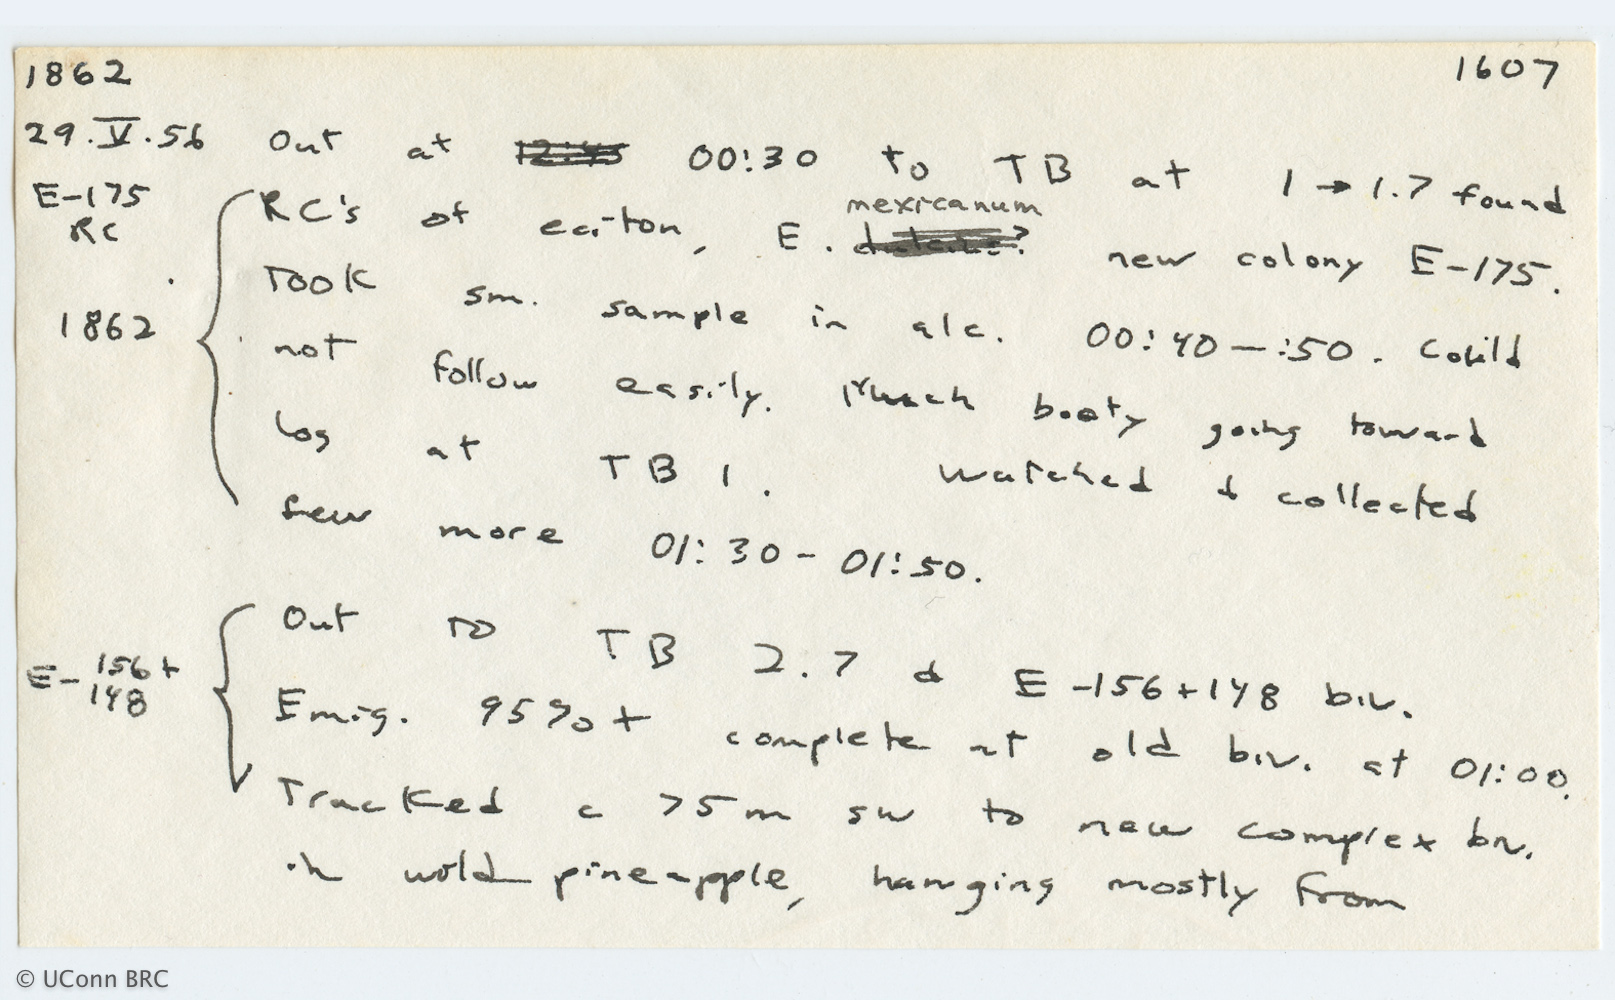 1862 1607
29.V.56 Out at 12:45 00:30 to TB at 1 → 1.7 found
E-175 RC's of eciton, E. mexicanum new colony E-175.
RC
Took sm. sample in alc. 00:40 — :50. Could
1862 not follow easily. Much booty going toward
log at TB 1. Watched & collected
few more 01:30 - 01:50.
Out to TB 2.7 & E-156+148 biv.
E-156+148 Emig. 95%+ complete at old biv. at 01:00.
Tracked c 75m sw to new complex biv.
in wild pineapple, hanging mostly from
© UConn BRC